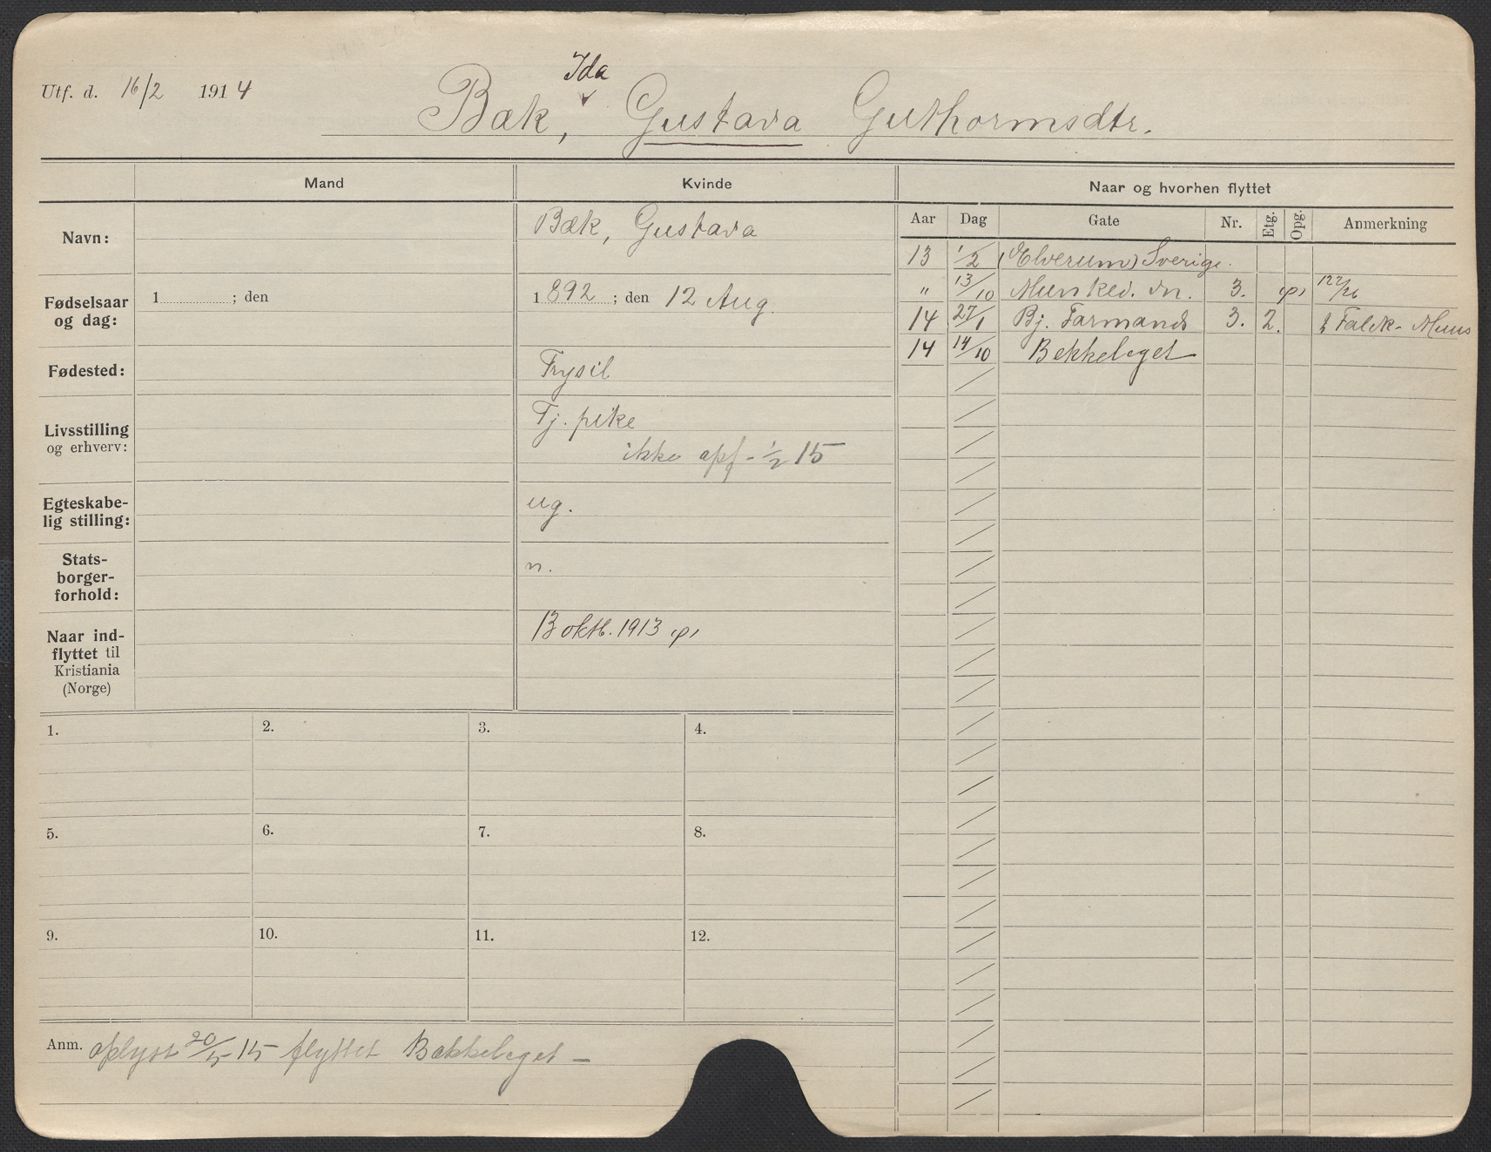 Utf. d. 16/2 1914
Ida
Bæk, Gustava Guthormsdtr.
Mand
Kvinde
Naar og hvorhen flyttet
Navn:
Bæk, Gustava
Fødselsaar og dag:
1 ; den
1892 ; den 12 Aug.
Fødested:
Trysil
Livsstilling og erhverv:
Tj. pike
ikke opf - 1/2 15
Egteskabe-
lig stilling:
ug.
Stats-
borger-
forhold:
n.
Naar ind-
flyttet til
Kristiania
(Norge)
13 oktb. 1913
Aar Dag Gate Nr. Etg. Opg. Anmerkning
13 1/2 (Elverum) Sverige.
" 13/10 Munked. vn. 3.
14 27/1 Bj. Farmands 3. 2. Falck - Muus
14 14/10 Bekkelaget
1. 2. 3. 4.
5. 6. 7. 8.
9. 10. 11. 12.
Anm. oplyst 20/5 15 flyttet Bækkelaget -